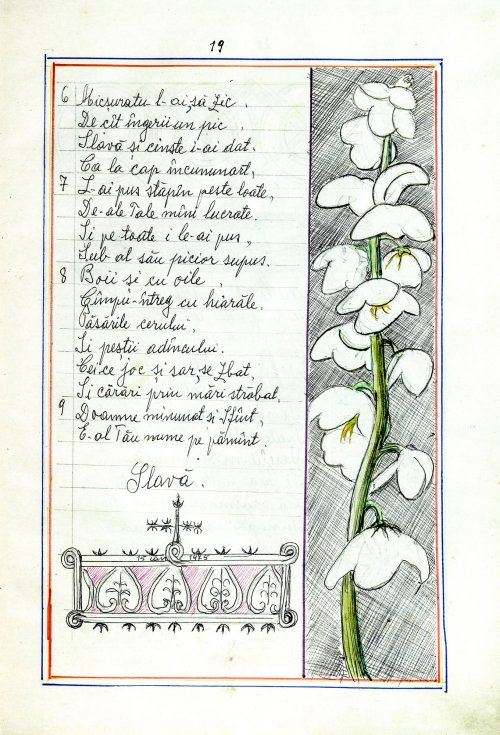 19
6 Micșuratu l-ai să zic.
De cît îngerii un pic,
Slavă și cinste i-ai dat.
Ca la cap încununat,
7 L-ai pus stăpîn peste toate,
De-ale Tale mîni lucrate.
Și pe toate i le-ai pus,
Sub al său picior supus.
8 Boii și cu oile,
Cîmpu-întreg cu hiarăle.
Păsările cerului,
Și peștii adîncului.
Cei ce joc și sar, se zbat,
Și cărări prin mări străbat,
9 Doamne minunat și Sfînt,
E-al Tău nume pe pămînt
Slavă.
15 1975